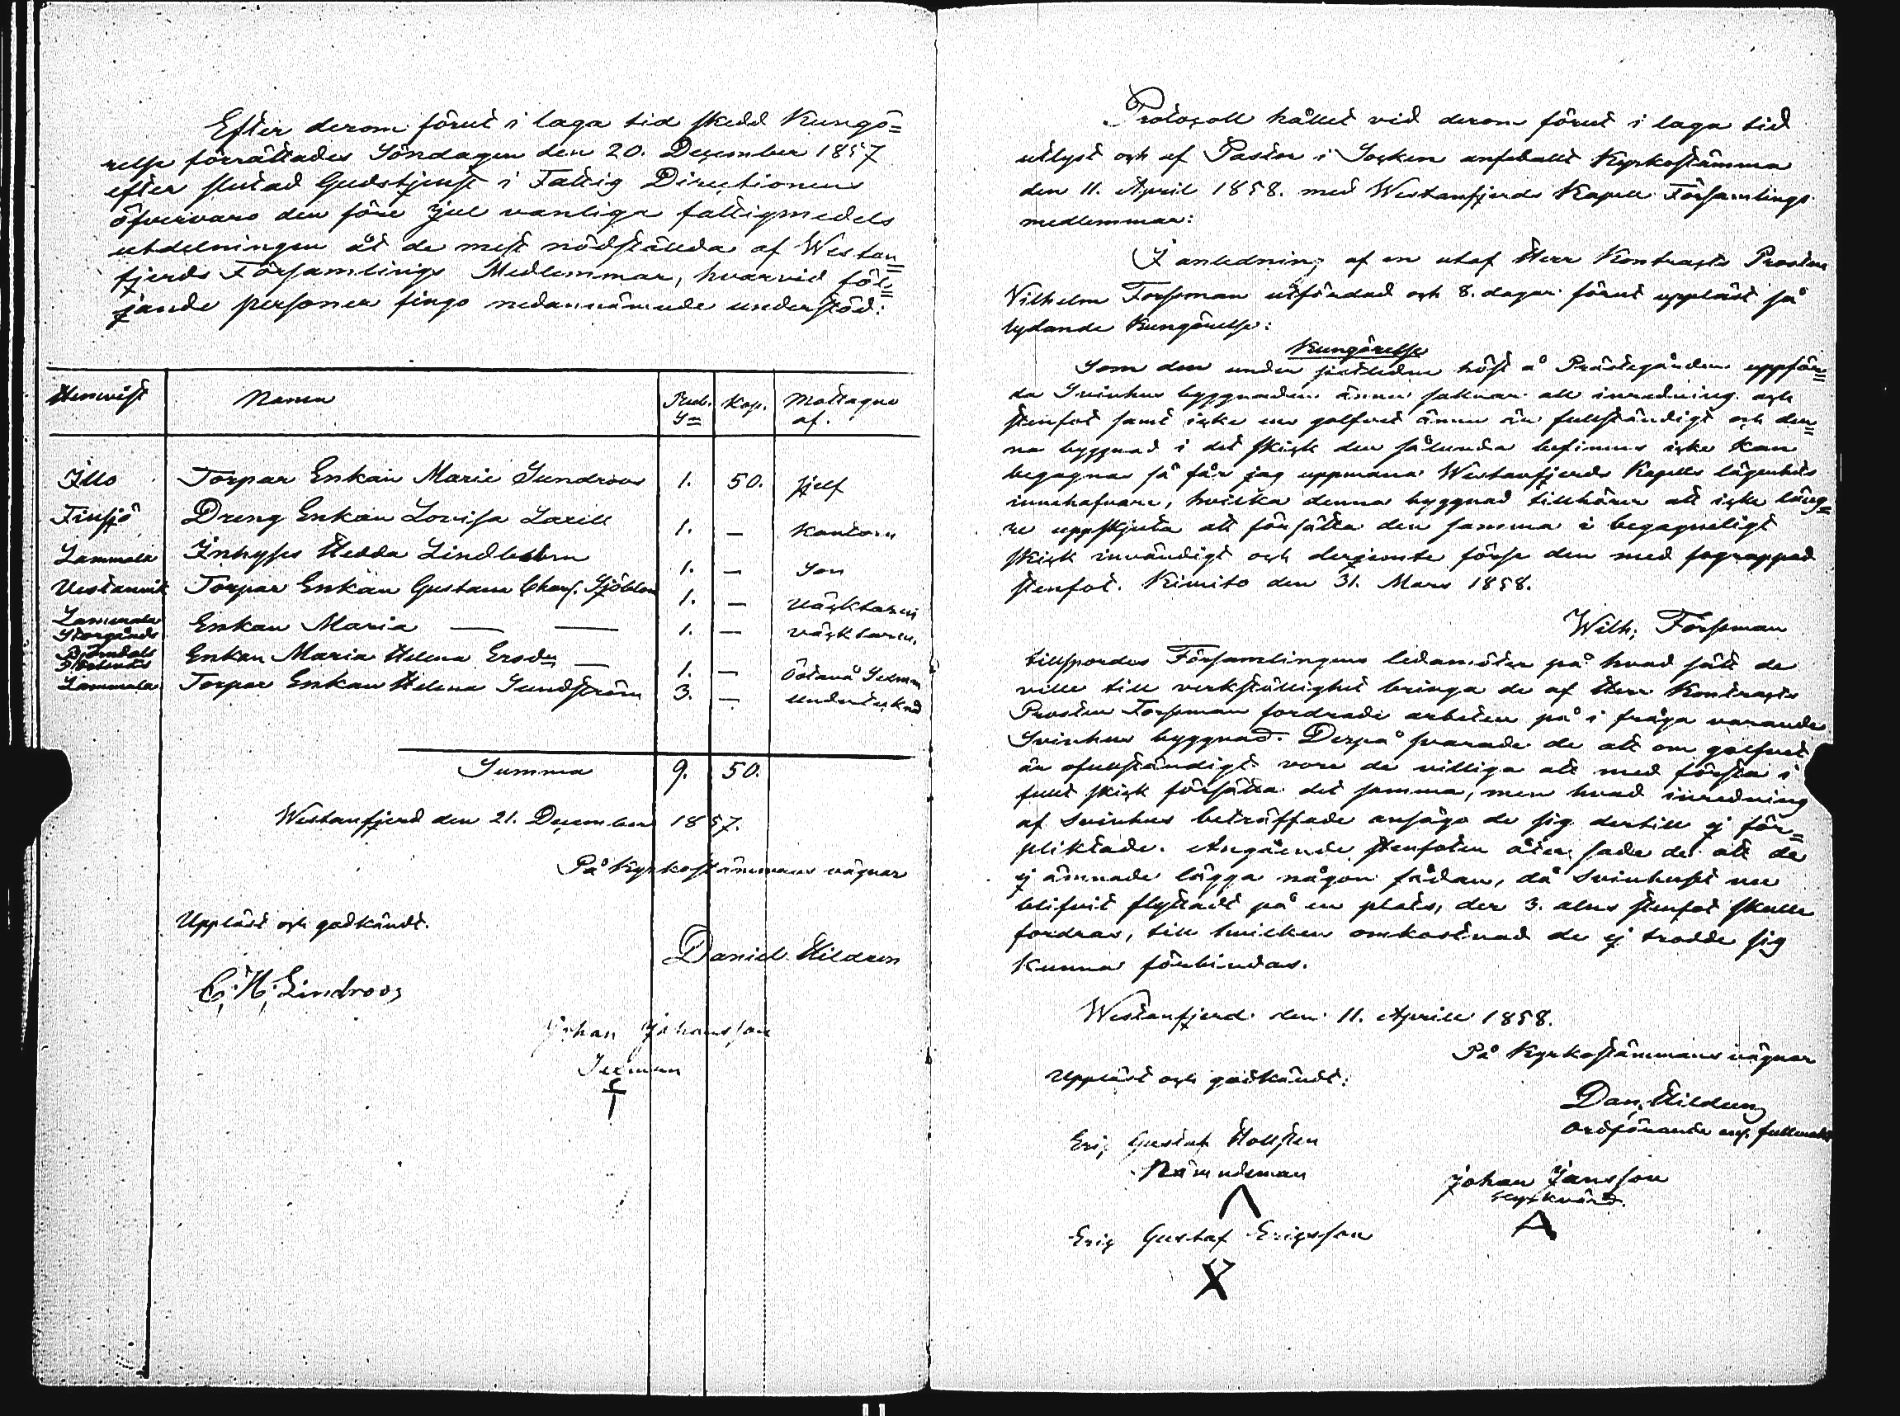 Efter derom förut i laga tid skedd Kungö=
relse förrättades Söndagen den 20. December 1857
efter slutad Gudstjenst i Fattig Directionens
öfvervaro den före Jul vanliga fattigmedels
utdelningen åt de mest nödställda af Westan=
fjerds Församlings Medlemmar, hvarvid föl=
jande personer fingo nedannämnde understöd:
Hemvist Namn Rub. Sr Kop. Mottagne af.
Illo Torpar Enkan Maria Sundroos 1. 50. sjelf
Finsjö Dreng Enkan Lovisa Larill 1. — Kantorn
Lammala Inhyses Hedda Lindblom 1. — Son
Vestanvik Torpar Enkan Gustava Sjöblom 1. — Väcktaren
Lammala Storgårds Enkan Maria — — 1. — väcktaren.
Enkan Maria Helena Ersdr — 1. — Selman
Lammala Torpar Enkan Helena Sundström 3. — undertecknad
Summa 9. 50.
Westanfjerd den 21. December 1857.
På Kyrkostämmans vägnar
Uppläst och godkändt.
Daniel Hildeen
C. H. Lindroos
Johan Johansson
Selman
Protocoll hållet vid derom förut i laga tid
utlyst och af Pastor i Socken anbefalld Kyrkostämma
den 11. April 1858. med Westanfjerds Kapell Församlings
medlemmar:
I anledning af en utaf Herr Kontracts Prosten
Vilhelm Forssman utfärdad och 8. dagar förut uppläst så
lydande Kungörelse:
Kungörelse
Som den under sistledne höst å Prästegården uppför=
da Svinhus byggnaden ännu saknar all inredning och
stenfot samt icke en golfvet ännu är fullständigt och den=
na byggnad i det skick den sålunda befinnes icke kan
begagnas så får jag uppmana Westanfjerds Kapells lägenhets
innehafvare, hvilka denna byggnad tillhörer att icke läng=
re uppskjuta att försätta den samma i begagneligt
skick invändigt och derjemte förse den med fograppad
stenfot. Kimito den 31. Mars 1858.
Wilh. Forssman
tillspordes Församlingens ledamöter på hvad sätt de
ville till verkställighet bringa de af Herr Kontracts
Prosten Forssman fordrade arbeten på i fråga varande
Svinhus byggnad. Derpå svarade de att om golfvet
är ofullständigt vore de villiga att med första i
fullt skick försätta det samma, men hvad inredning
af Svinhus beträffade ansågo de sig dertill ej för=
pliktade. Angående stenfoten åter sade de att de
ej ämnade lägga någon sådan, då Svinhuset nu
blifvit flyttadt på en plats, der 3. alns stenfot skulle
fordras, till hvilken omkostnad de ej trodde sig
kunna förbindas.
Westanfjerd den 11. Aprill 1858.
På Kyrkostämmans vägnar
Uppläst och godkändt:
Dan. Hildeen
Ordförande enl. fullmakt
Eric Gustaf Hollsten
Nämndeman
Johan Jansson
Kyrkvärd.
Eric Gustaf Ericsson